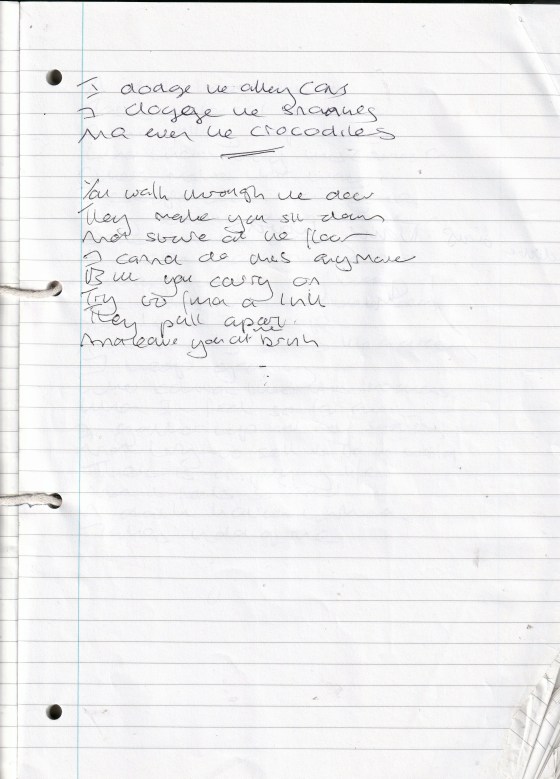 I dodge the alley cars
I dogege the snakes
And even the crocodiles
You walk through the door
They make you sit down
And stare at the floor
I cannot do this anymore
But you carry on
Try to find a link
They pull apart
And leave you at the brink